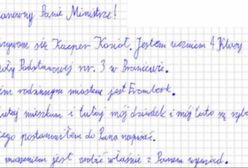 anowny Panie Ministrze!
azywam się Kacper Kozioł. Jestem uczniem 4 klasy
oły Podstawowej nr. 3 w Braniewie.
im rodzinnym miastem jest Frombork.
mieszkam i tutaj mój dziadek i mój tato są ryba
ego postanowiłem do Pana napisać.
marzeniem jest zrobić właśnie z Panem wywiad.